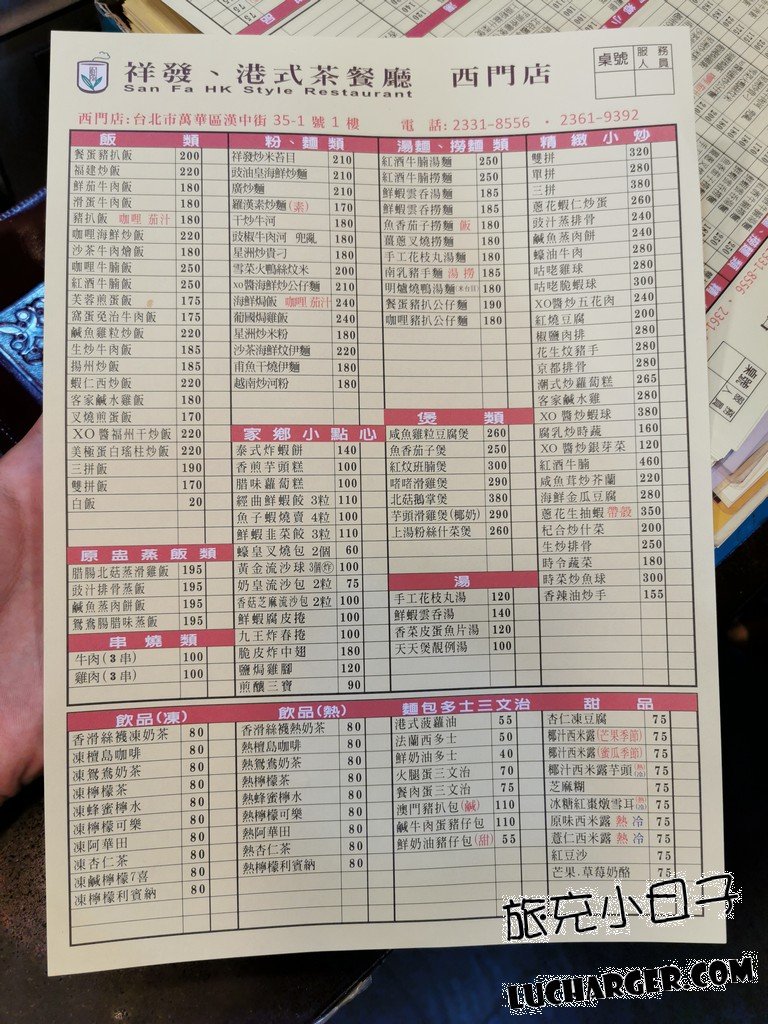 祥發、港式茶餐廳 西門店
San Fa HK Style Restaurant
桌號 服務人員
西門店:台北市萬華區漢中街 35-1 號 1 樓 電 話: 2331-8556 ・ 2361-9392
飯 類
餐蛋豬扒飯 200
福建炒飯 220
鮮茄牛肉飯 180
滑蛋牛肉飯 180
豬扒飯 咖哩 茄汁 180
咖哩海鮮炒飯 220
沙茶牛肉燴飯 180
咖哩牛腩飯 250
紅酒牛腩飯 250
芙蓉煎蛋飯 175
窩蛋免治牛肉飯 175
鹹魚雞粒炒飯 220
生炒牛肉飯 185
揚州炒飯 185
蝦仁西炒飯 220
客家鹹水雞飯 180
叉燒煎蛋飯 170
XO醬福州干炒飯 220
美極蛋白瑤柱炒飯 220
三拼飯 190
雙拼飯 170
白飯 20
原盅蒸飯類
腊腸北菇蒸滑雞飯 195
豉汁排骨蒸飯 195
鹹魚蒸肉餅飯 195
鴛鴦腸腊味蒸飯 195
串燒類
牛肉(3串) 100
雞肉(3串) 100
粉、麵類
祥發炒米苔目 210
豉油皇海鮮炒麵 210
廣炒麵 210
羅漢素炒麵(素) 170
干炒牛河 180
豉椒牛肉河 兜亂 180
星洲炒貴刁 180
雪菜火鴨絲炆米 200
xo醬海鮮炒公仔麵 210
海鮮焗飯 咖哩 茄汁 240
葡國焗雞飯 240
星洲炒米粉 180
沙茶海鮮炆伊麵 220
甫魚干燒伊麵 180
越南炒河粉 180
家鄉小點心
泰式炸蝦餅 140
香煎芋頭糕 100
腊味蘿蔔糕 100
經曲鮮蝦餃 3粒 110
魚子蝦燒賣 4粒 100
鮮蝦韭菜餃 110
蠔皇叉燒包 2個 60
黃金流沙球 3個炸 100
奶皇流沙包 2粒 75
香菇芝麻流沙包 2粒 100
鮮蝦腐皮捲 100
九王炸春捲 100
脆皮炸中翅 180
鹽焗雞腳 120
煎釀三寶 90
湯麵、撈麵類
紅酒牛腩湯麵 250
紅酒牛腩撈麵 250
鮮蝦雲吞湯麵 185
鮮蝦雲吞撈麵 185
魚香茄子撈麵 飯 180
薑蔥叉燒撈麵 180
手工花枝丸湯麵 180
南乳豬手麵 湯 撈 185
明爐燒鴨湯麵 180
餐蛋豬扒公仔麵 190
咖哩豬扒公仔麵 180
煲 類
咸魚雞粒豆腐煲 260
魚香茄子煲 250
紅炆班腩煲 300
啫啫滑雞煲 290
北菇鵝掌煲 380
芋頭滑雞煲(椰奶) 290
上湯粉絲什菜煲 260
湯
手工花枝丸湯 120
鮮蝦雲吞湯 140
香菜皮蛋魚片湯 120
天天煲靚例湯 100
精緻小炒
雙拼 320
單拼 280
三拼 380
蔥花蝦仁炒蛋 260
豉汁蒸排骨 240
鹹魚蒸肉餅 240
蠔油牛肉 280
咕咾雞球 280
咕咾脆蝦球 300
XO醬炒五花肉 240
紅燒豆腐 200
椒鹽肉排 280
花生炆豬手 280
京都排骨 280
潮式炒蘿蔔糕 265
客家鹹水雞 280
XO 醬炒蝦球 380
腐乳炒時蔬 160
XO 醬炒銀芽菜 120
紅酒牛腩 460
咸魚茸炒芥蘭 220
海鮮金瓜豆腐 280
蔥花生抽蝦 帶殼 350
杞合炒什菜 200
生炒排骨 250
時令蔬菜 180
時菜炒魚球 300
香辣油炒手 155
飲品(凍)
香滑絲襪凍奶茶 80
凍檀島咖啡 80
凍鴛鴦奶茶 80
凍檸檬茶 80
凍蜂蜜檸水 80
凍檸檬可樂 80
凍阿華田 80
凍杏仁茶 80
凍鹹檸檬7喜 80
凍檸檬利賓納 80
飲品(熱)
香滑絲襪熱奶茶 80
熱檀島咖啡 80
熱鴛鴦奶茶 80
熱檸檬茶 80
熱蜂蜜檸水 80
熱檸檬可樂 80
熱阿華田 80
熱杏仁茶 80
熱檸檬利賓納 80
麵包多士三文治
港式菠蘿油 55
法蘭西多士 50
鮮奶油多士 40
火腿蛋三文治 70
餐肉蛋三文治 75
澳門豬扒包(鹹) 110
鹹牛肉蛋豬仔包 110
鮮奶油豬仔包(甜) 55
甜 品
杏仁凍豆腐 75
椰汁西米露(芒果季節) 75
椰汁西米露(蜜瓜季節) 75
椰汁西米露芋頭(熱冷) 75
芝麻糊 75
冰糖紅棗燉雪耳(熱冷) 75
原味西米露 熱 冷 75
薏仁西米露 熱 冷 75
紅豆沙 75
芒果.草莓奶酪 75
旅充小日子
LUCHARGER.COM